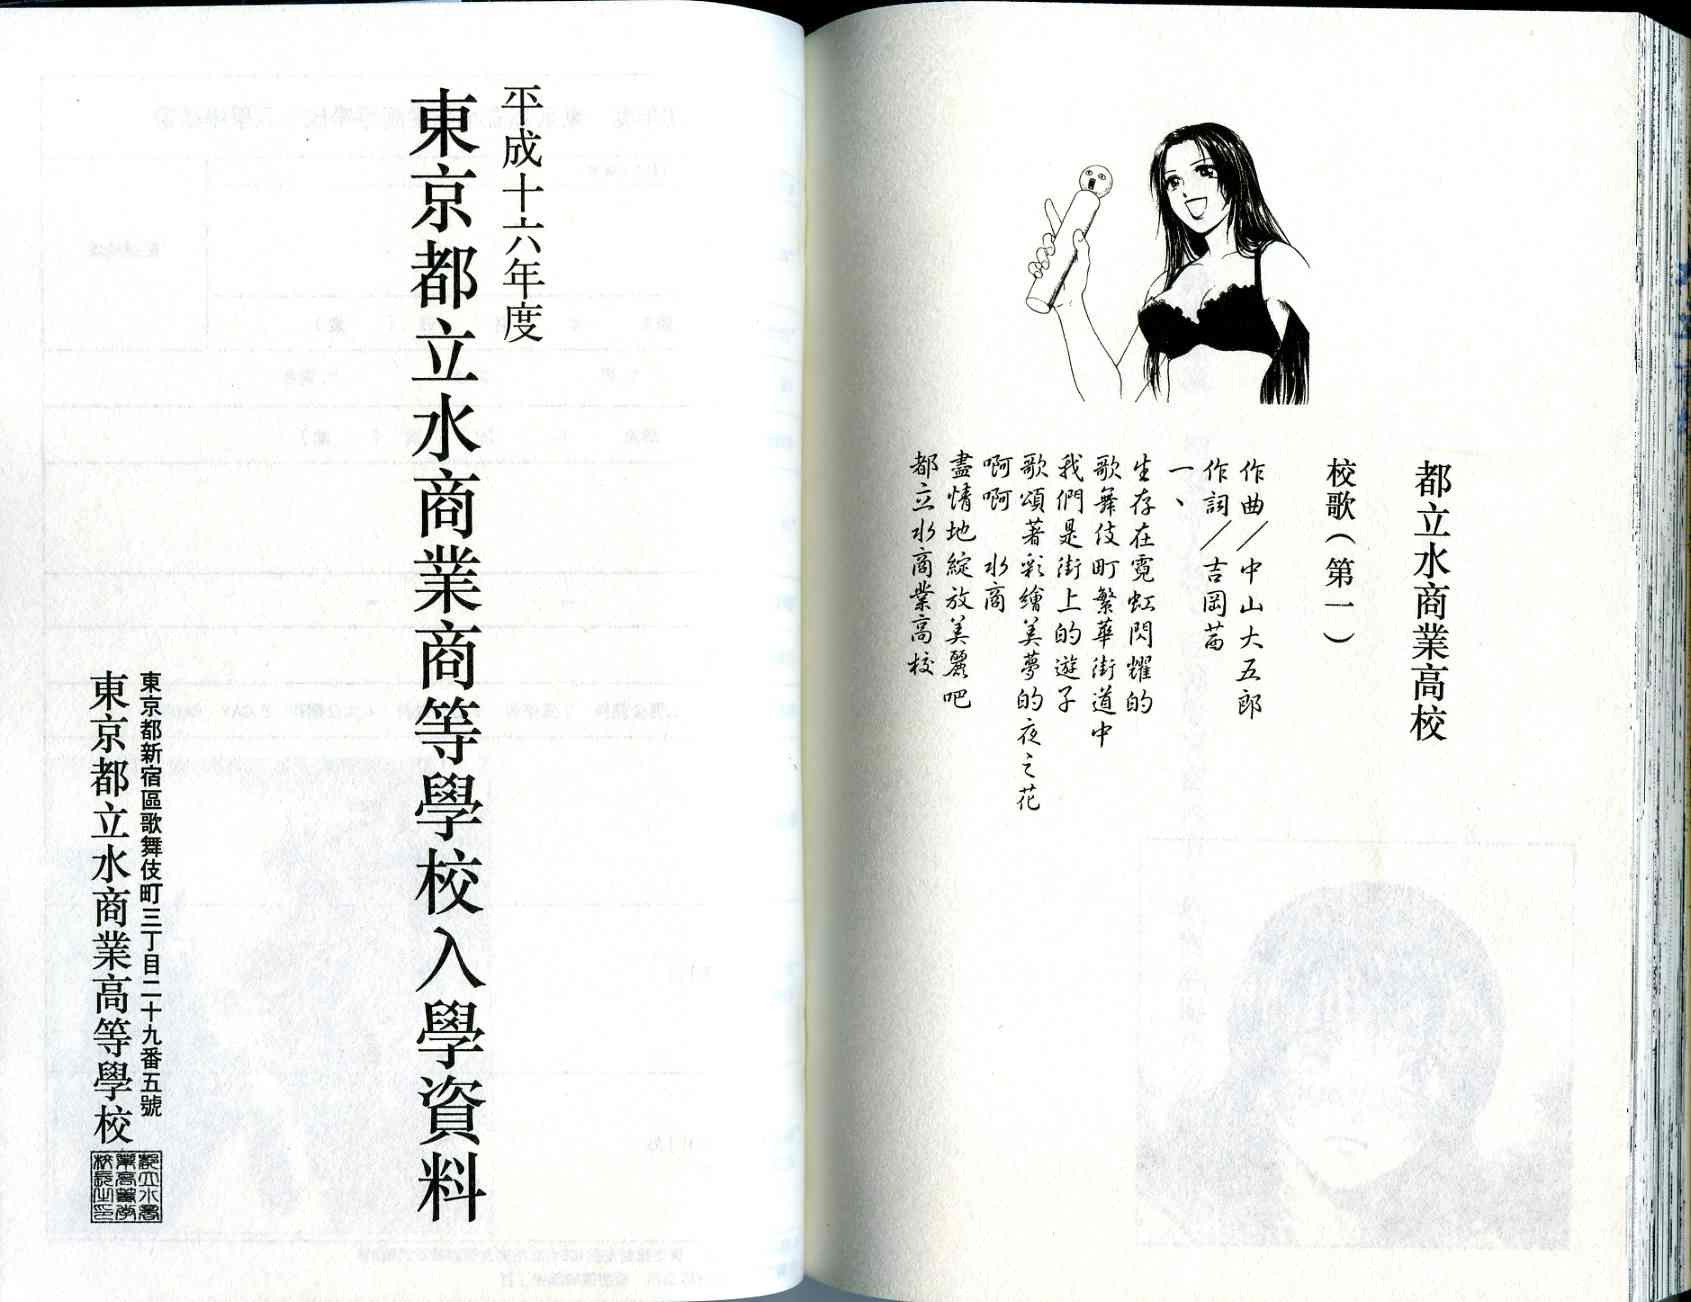 都立水商業高校
校歌（第一）
作曲／中山大五郎
作詞／吉岡茁
一、
生存在霓虹閃耀的
歌舞伎町繁華街道中
我們是街上的遊子
歌頌著彩繪美夢的夜之花
啊啊　水商
盡情地綻放美麗吧
都立水商業高校
平成十六年度
東京都立水商業商等學校入學資料
東京都新宿區歌舞伎町三丁目二十九番五號
東京都立水商業高等學校